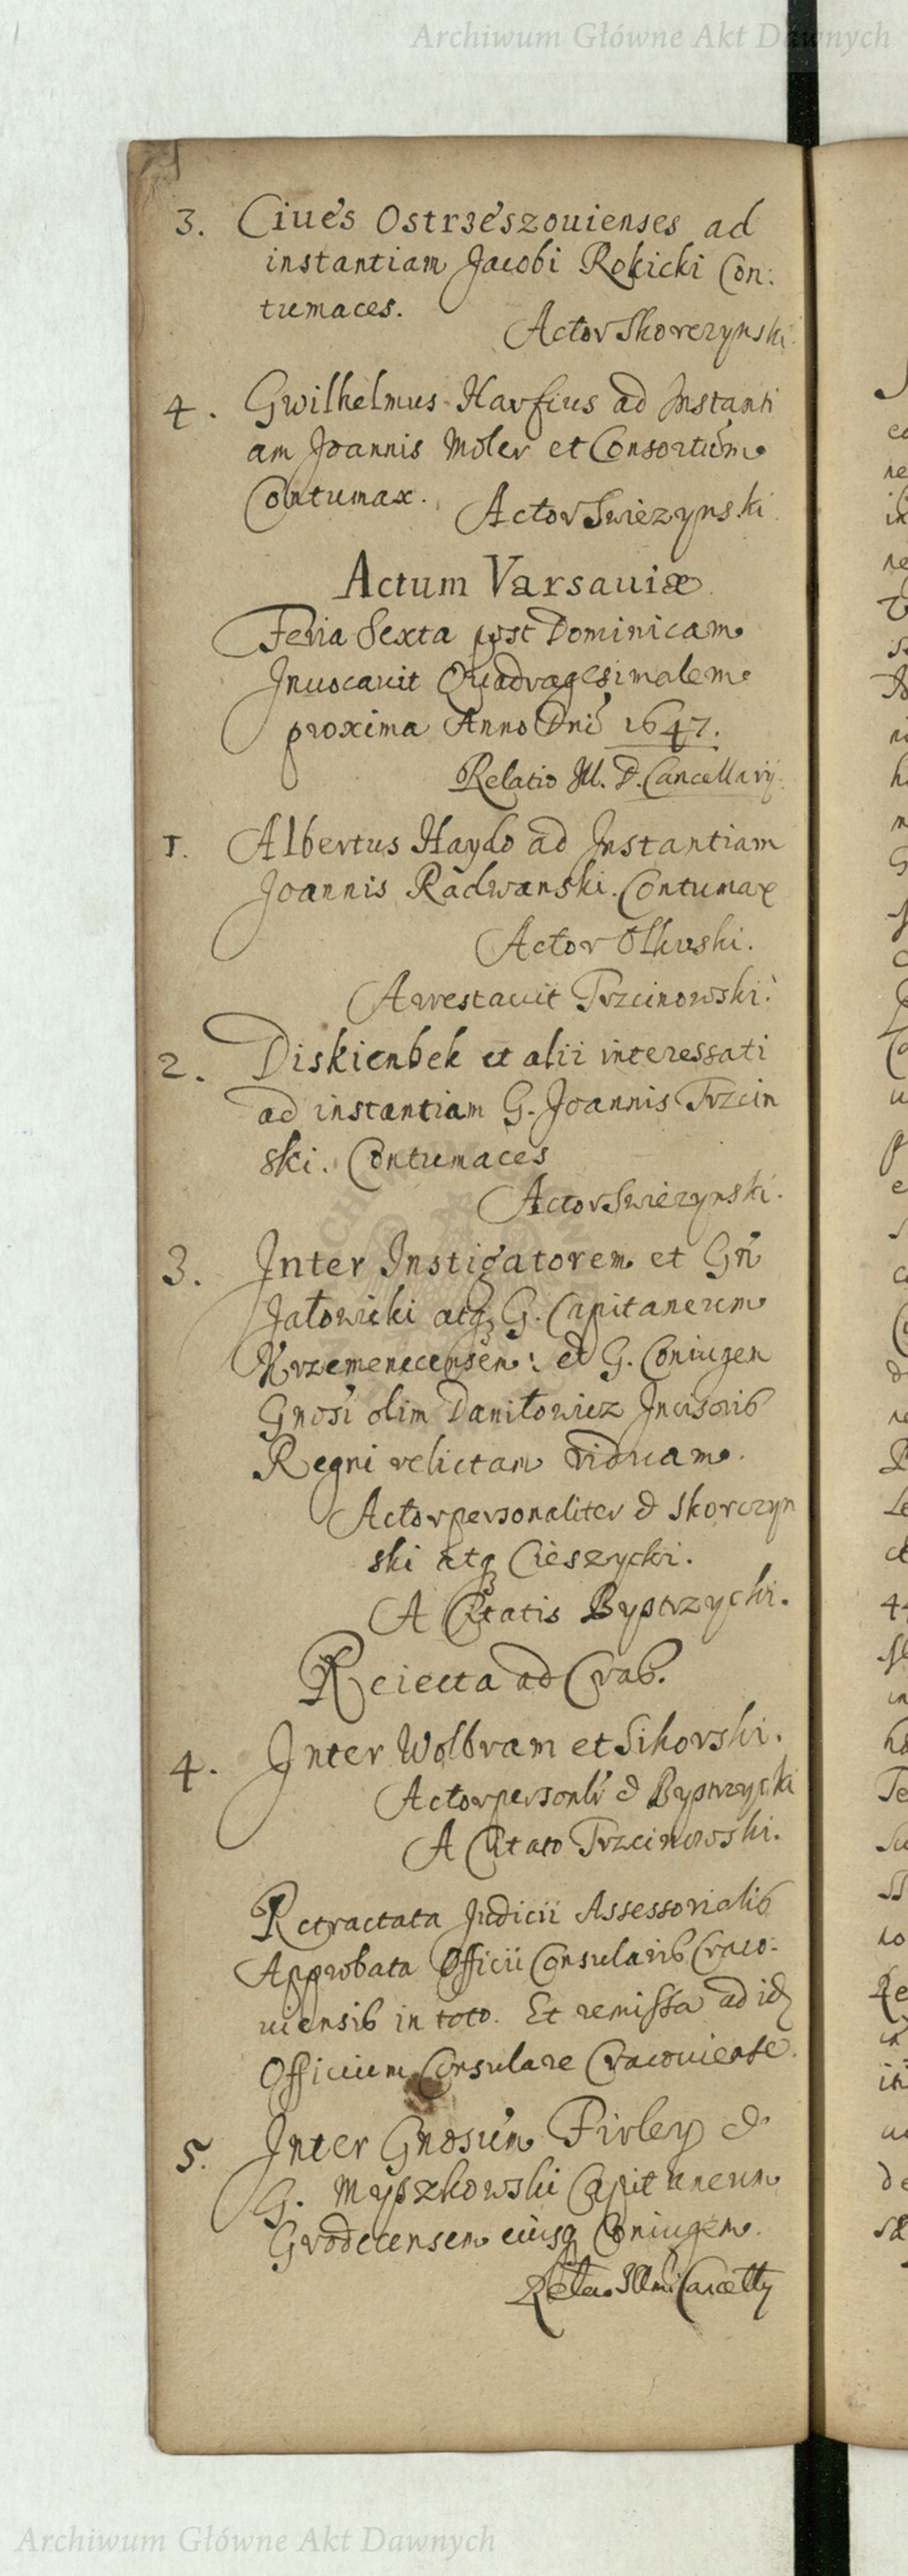 Archiwum Główne Akt Dawnych
3. Ciues Ostrzeszouienses ad
instantiam Jacobi Rokicki Con:
tumaces.
Actor Skorczynski
4. Gwilhelmus Harfius ad Instanti
am Joannis Moler et Consortum
Contumax.
Actor Swiezynski
Actum Varsauiæ
Feria Sexta post Dominicam
Inuocauit Quadragesimalem
proxima Anno Dni 1647.
Relatio Ill. D. Cancellarij
1. Albertus Haydo ad Instantiam
Joannis Radwanski. Contumax
Actor Olkuski.
Arrestauit Trzcinowski.
2. Diskienbek et alii interessati
ad instantiam G. Joannis Trzcin
ski. Contumaces
Actor Swiezynski.
3. Inter Instigatorem et Gn
Jałowicki atq G. Capitaneum
Krzemenecensen: et G. Coniugen
Gnosi olim Daniłowicz Incisoris
Regni relictam viduam.
Actor personaliter & Skorczyn
ski atq Cieszycki.
A Citatis Bystrzycki.
Reiecta ad Cras.
4. Inter Wolbram et Sikorski.
Actor personlr & Bystrzycki
A Citato Trzcinowski.
Retractata Judicii Assessorialis
Approbata Officii Consularis Craco-
uiensis in toto. Et remissa ad id
Officium Consulare Cracouiense.
5. Inter Gnosum Firley &
G. Myszkowski Capitaneum
Grodecensem eiusq Coniugem.
Rela. Illmi Cancelly
Archiwum Główne Akt Dawnych